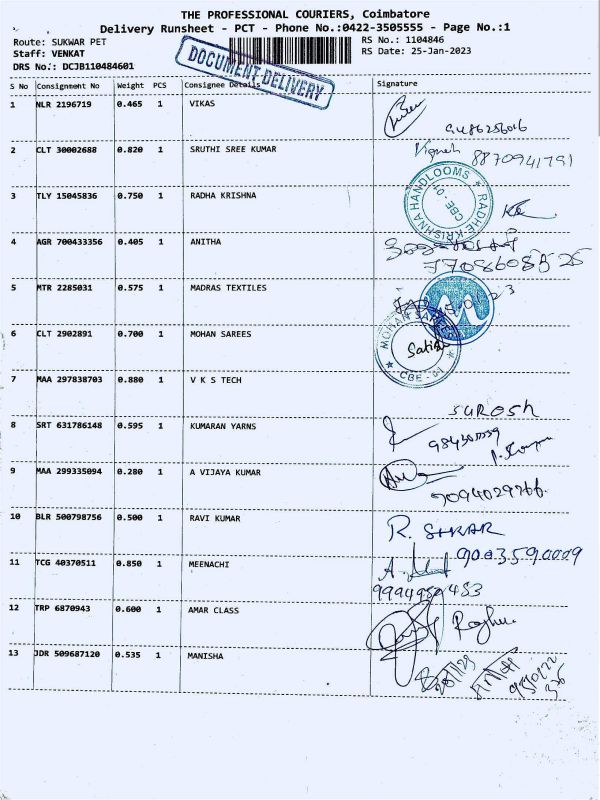 THE PROFESSIONAL COURIERS, Coimbatore
Delivery Runsheet - PCT - Phone No.:0422-3505555 - Page No.:1
Route: SUKWAR PET RS No.: 1104846
Staff: VENKAT RS Date: 25-Jan-2023
DRS No.: DCJB110484601
DOCUMENT DELIVERY
S No Consignment No Weight PCS Consignee Details Signature
1 NLR 2196719 0.465 1 VIKAS
2 CLT 30002688 0.820 1 SRUTHI SREE KUMAR Vignesh 8870941791
3 TLY 15045836 0.750 1 RADHA KRISHNA
RADHE KRISHNA HANDLOOMS
CBE-01
4 AGR 700433356 0.405 1 ANITHA
5 MTR 2285031 0.575 1 MADRAS TEXTILES
6 CLT 2902891 0.700 1 MOHAN SAREES
Satish
CBE - 01
7 MAA 297838703 0.880 1 V K S TECH
SUROSH
8 SRT 631786148 0.595 1 KUMARAN YARNS
9 MAA 299335094 0.280 1 A VIJAYA KUMAR
9094029766
10 BLR 500798756 0.500 1 RAVI KUMAR
R. SEKAR
9003590009
11 TCG 40370511 0.850 1 MEENACHI
12 TRP 6870943 0.600 1 AMAR CLASS Raghu
13 JDR 509687120 0.535 1 MANISHA